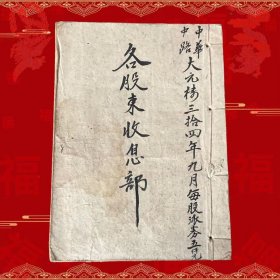 中華
中路
大元楼三拾四年九月每股派券壹
各股東收息部